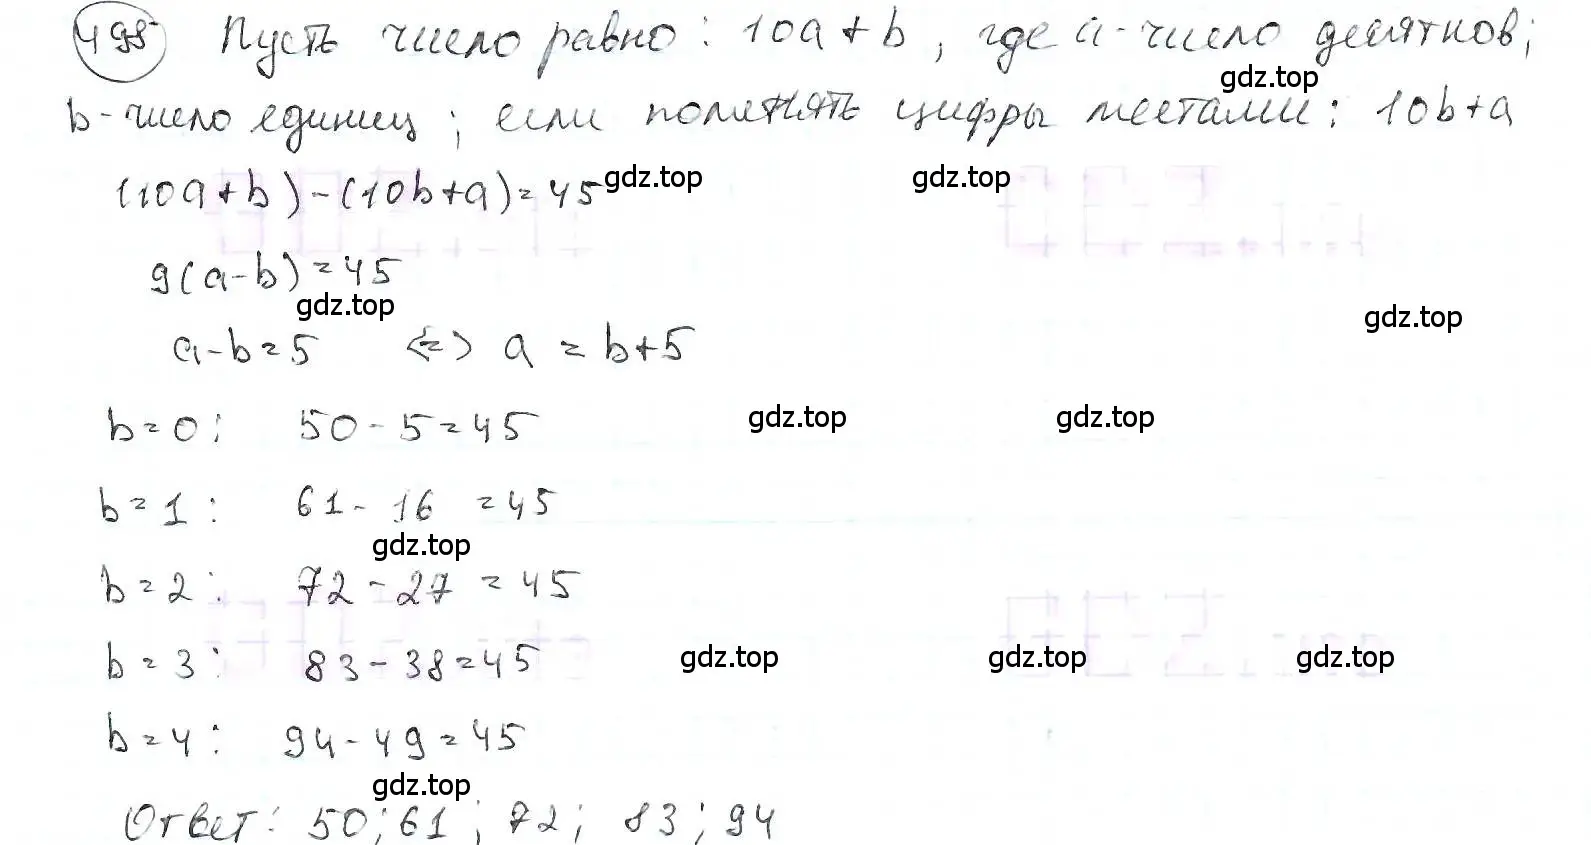 498 Пусть число равно: 10a+b, где a-число десятков;
gdz.top
b-число единиц; если поменять цифры местами: 10b+a
(10a+b)-(10b+a)=45
gdz.top gdz.top
9(a-b)=45
gdz.top
gdz.top
a-b=5 <=> a=b+5
b=0; 50-5=45
gdz.top gdz.top
b=1: 61-16=45
gdz.top
b=2: 72-27=45
b=3: 83-38=45
gdz.top gdz.top gdz.top
b=4: 94-49=45
gdz.top
Ответ: 50; 61; 72; 83; 94